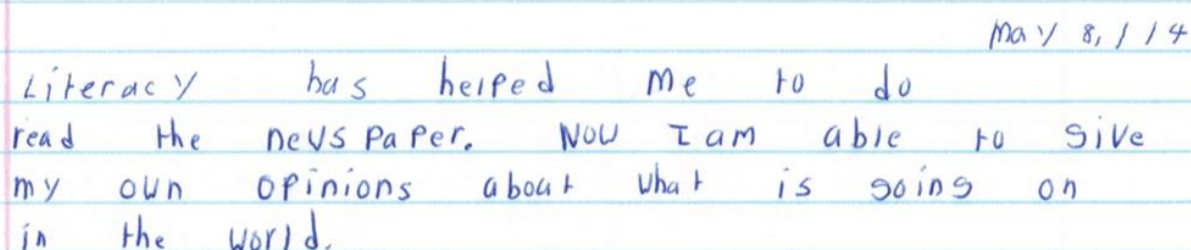 May 8, / 14
Literacy has helped me to do
read the newspaper. Now I am able to give
my own opinions about what is going on
in the world.